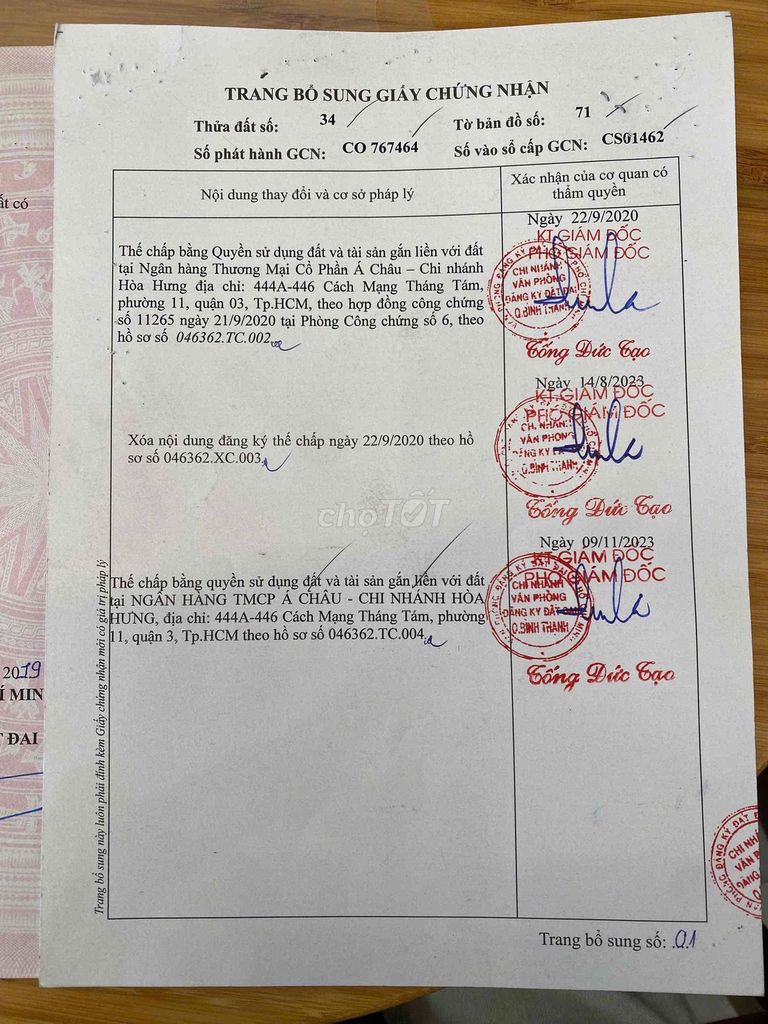 TRANG BỔ SUNG GIẤY CHỨNG NHẬN
Thửa đất số: 34
Tờ bản đồ số: 71
Số phát hành GCN: CO 767464
Số vào sổ cấp GCN: CS01462
Nội dung thay đổi và cơ sở pháp lý
Xác nhận của cơ quan có
thẩm quyền
Thế chấp bằng Quyền sử dụng đất và tài sản gắn liền với đất
tại Ngân hàng Thương Mại Cổ Phần Á Châu – Chi nhánh
Hòa Hưng địa chỉ: 444A-446 Cách Mạng Tháng Tám,
phường 11, quận 03, Tp.HCM, theo hợp đồng công chứng
số 11265 ngày 21/9/2020 tại Phòng Công chứng số 6, theo
hồ sơ số 046362.TC.002
Ngày 22/9/2020
KT.GIÁM ĐỐC
PHÓ GIÁM ĐỐC
CHI NHÁNH
VĂN PHÒNG
ĐĂNG KÝ ĐẤT ĐAI
Q.BÌNH THẠNH
Tống Đức Tạo
Xóa nội dung đăng ký thế chấp ngày 22/9/2020 theo hồ
sơ số 046362.XC.003
Ngày 14/8/2023
KT.GIÁM ĐỐC
PHÓ GIÁM ĐỐC
CHI NHÁNH
VĂN PHÒNG
ĐĂNG KÝ ĐẤT ĐAI
Q.BÌNH THẠNH
Tống Đức Tạo
chợTỐT
Thế chấp bằng quyền sử dụng đất và tài sản gắn liền với đất
tại NGÂN HÀNG TMCP Á CHÂU - CHI NHÁNH HÒA
HƯNG, địa chỉ: 444A-446 Cách Mạng Tháng Tám, phường
11, quận 3, Tp.HCM theo hồ sơ số 046362.TC.004
Ngày 09/11/2023
KT.GIÁM ĐỐC
PHÓ GIÁM ĐỐC
CHI NHÁNH
VĂN PHÒNG
ĐĂNG KÝ ĐẤT ĐAI
Q.BÌNH THẠNH
Tống Đức Tạo
Trang bổ sung này luôn phải đính kèm Giấy chứng nhận mới có giá trị pháp lý
Trang bổ sung số: 01
ất có
2019
Í MIN
T ĐAI